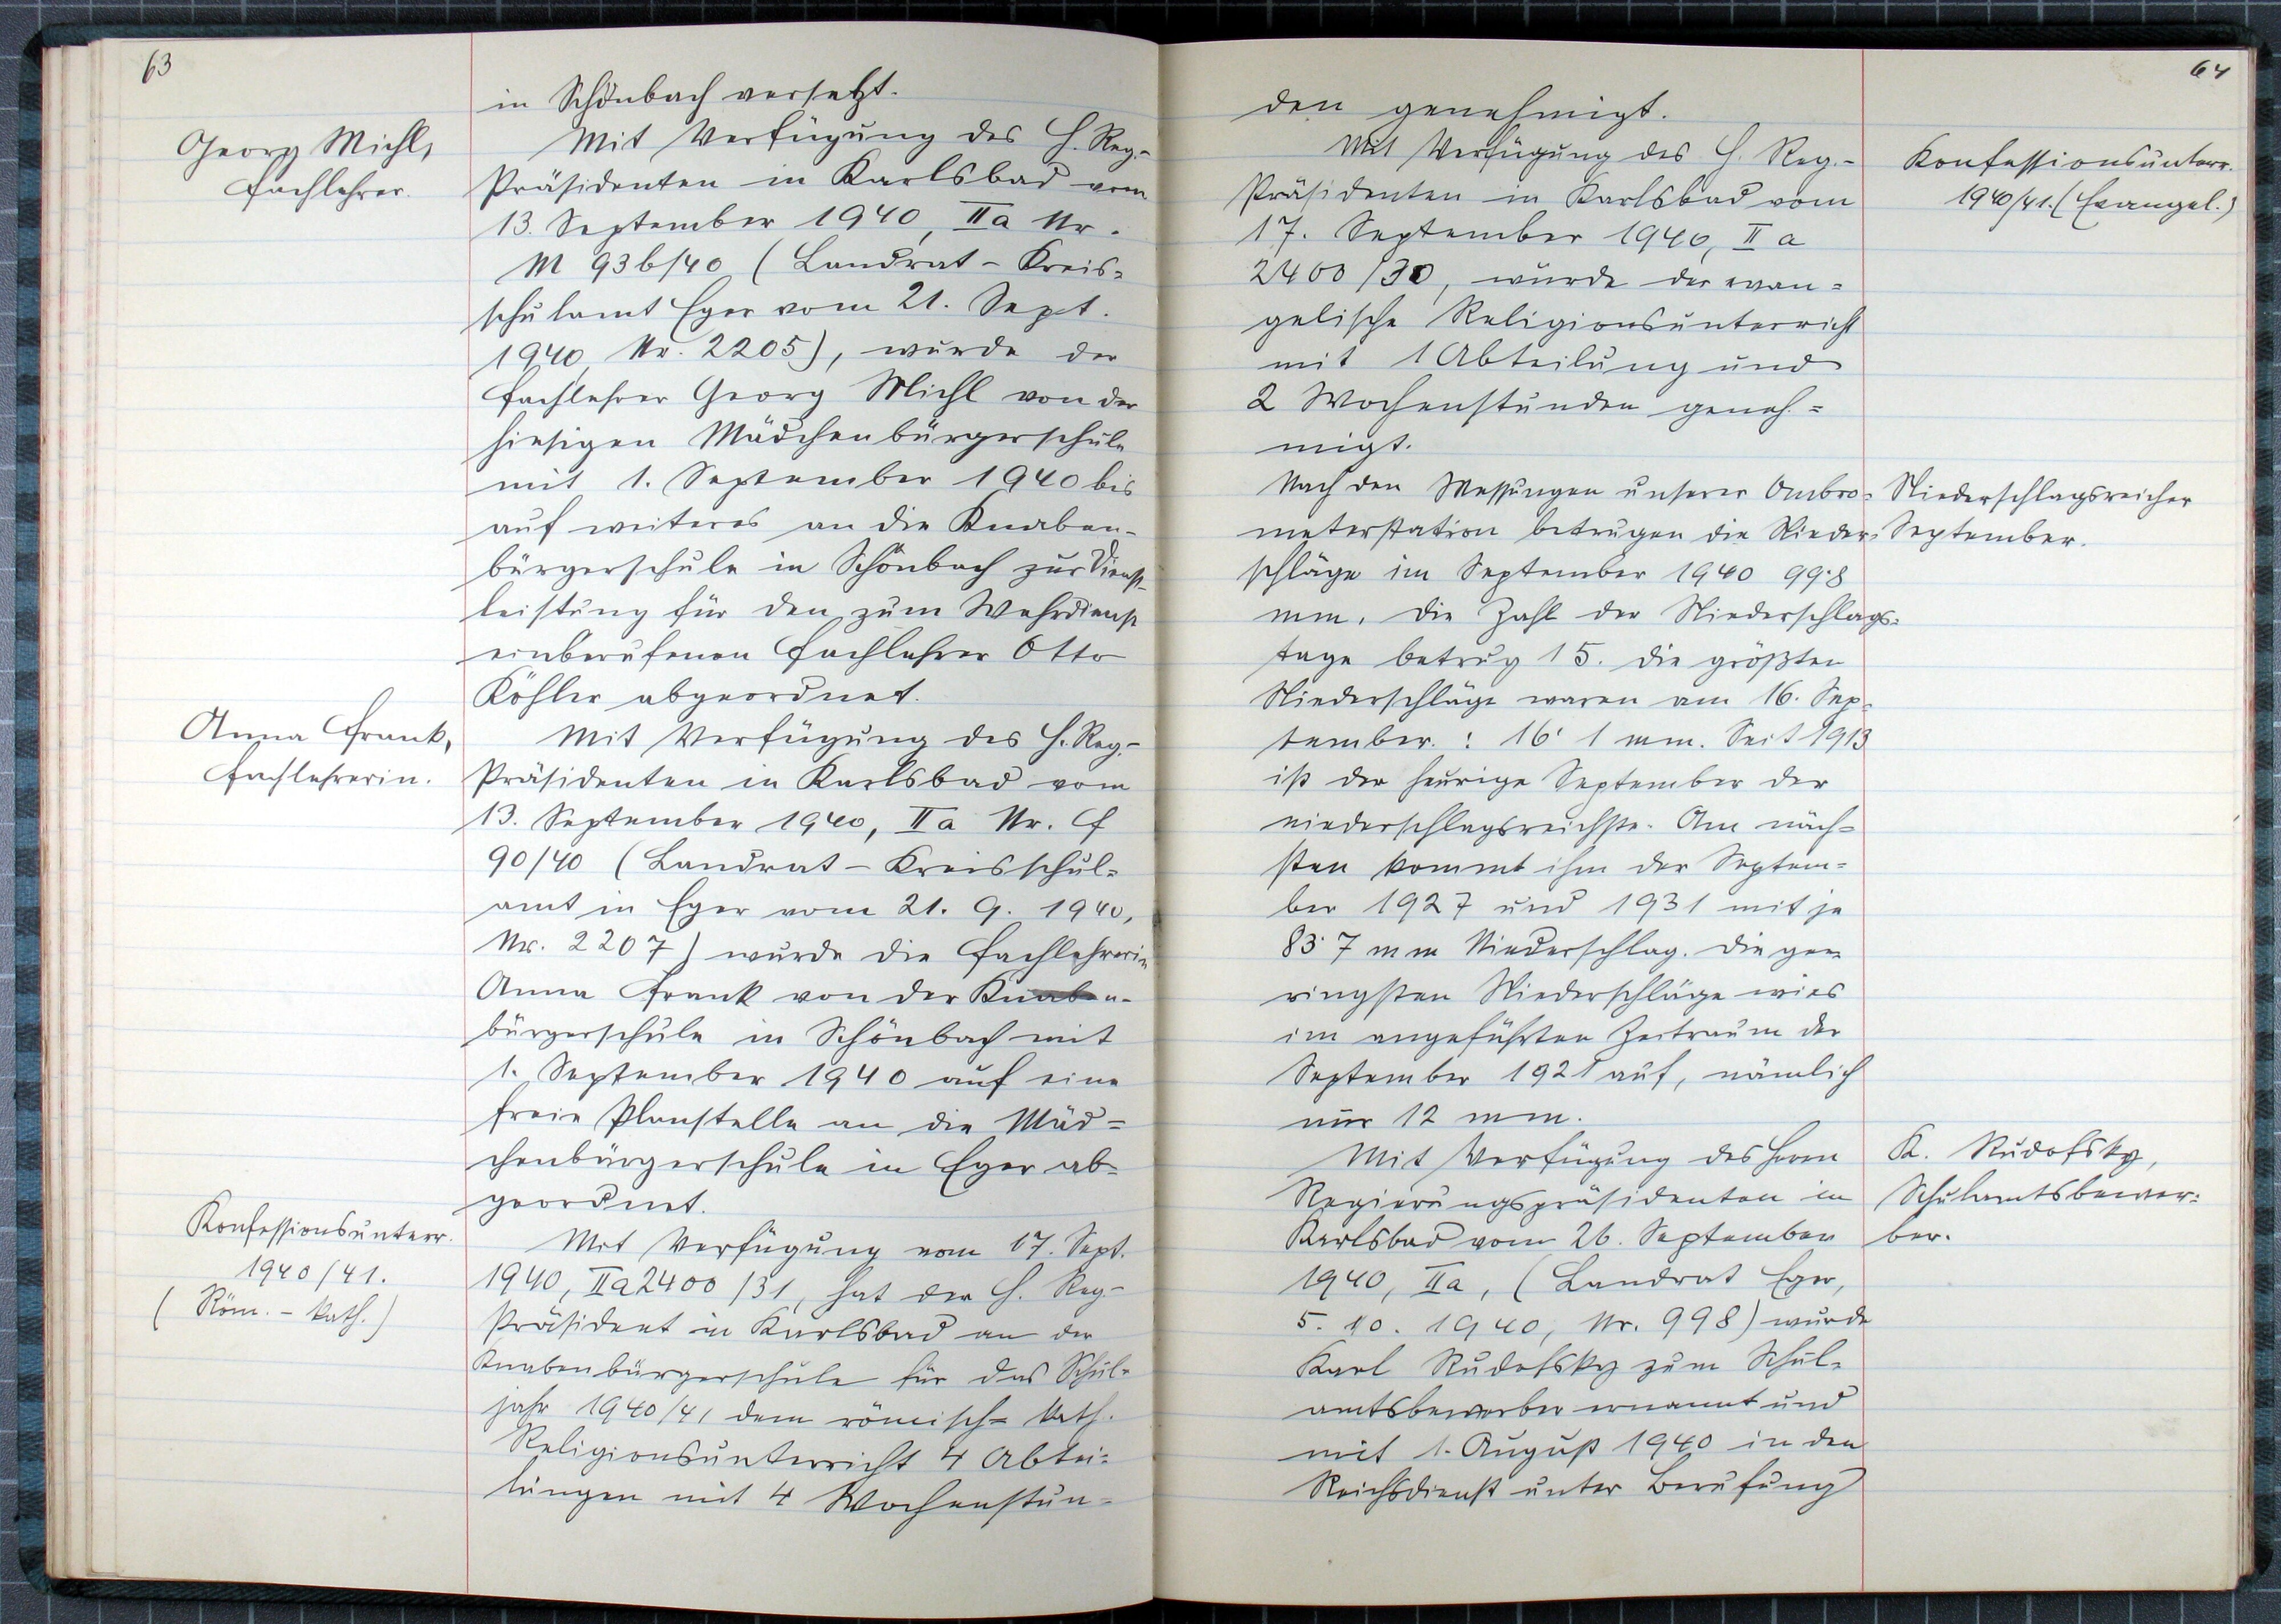 63
in Schönbach versetzt.
Georg Michl,
Fachlehrer.
Mit Verfügung des H. Reg.-
Präsidenten in Karlsbad vom
13. September 1940, IIa Nr.
M 93b/40 (Landrat - Kreis=
schulamt Eger vom 21. Sept.
1940, Nr. 2205), wurde der
Fachlehrer Georg Michl von der
hiesigen Mädchenbürgerschule
mit 1. September 1940 bis
auf weiteres an die Knaben-
bürgerschule in Schönbach zur Dienst-
leistung für den zum Wehrdienst
einberufenen Fachlehrer Otto
Köhler abgeordnet.
Anna Frank,
Fachlehrerin.
Mit Verfügung des H. Reg.-
Präsidenten in Karlsbad vom
13. September 1940, IIa Nr. F
90/40 (Landrat - Kreisschul=
amt in Eger vom 21. 9. 1940,
Nr. 2207) wurde die Fachlehrerin
Anna Frank von der Knaben-
bürgerschule in Schönbach mit
1. September 1940 auf eine
freie Planstelle an die Mäd=
chenbürgerschule in Eger ab=
geordnet.
Konfessionsunterr.
1940/41.
(Röm. - kath.)
Mit Verfügung vom 17. Sept.
1940, IIa 2400/31, hat der H. Reg-
Präsident in Karlsbad an der
Knabenbürgerschule für das Schul=
jahr 1940/41 dem römisch= kath.
Religionsunterricht 4 Abtei=
lungen mit 4 Wochenstun=
64
den genehmigt.
Mit Verfügung des H. Reg.-
Präsidenten in Karlsbad vom
17. September 1940, II a
2400/30, wurde der evan=
gelische Religionsunterricht
mit 1 Abteilung und
2 Wochenstunden geneh=
migt.
Konfessionsunterr.
1940/41. (Evangel.)
Nach den Messungen unserer Ombro=
meterstation betrugen die Nieder=
schläge im September 1940 99·8
mm. Die Zahl der Niederschlags=
tage betrug 15. Die größten
Niederschläge waren am 16. Sep=
tember. : 16·1 mm. Seit 1913
ist der heurige September der
niederschlagsreichste. Am näch=
sten kommt ihm der Septem=
ber 1927 und 1931 mit je
83·7 mm Niederschlag. Die ge=
ringsten Niederschläge wies
im angeführten Zeitraum der
September 1921 auf, nämlich
nur 12 mm.
Niederschlagsreicher
September.
Mit Verfügung des Herrn
Regierungspräsidenten in
Karlsbad vom 26. September
1940, IIa, (Landrat Eger,
5. 10. 1940, Nr. 998) wurde
Karl Rudofsky zum Schul=
amtsbewerber ernannt und
mit 1. August 1940 in den
Reichsdienst unter Berufung
K. Rudofsky,
Schulamtsbewer=
ber.